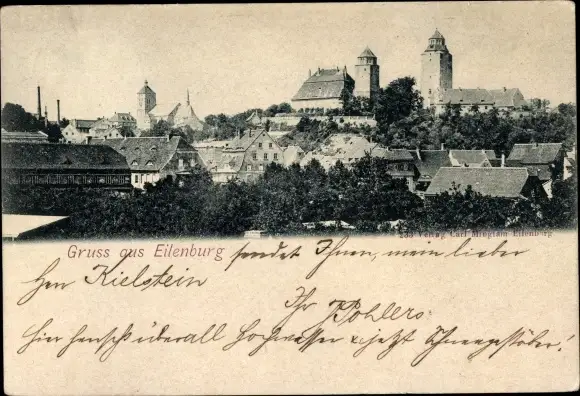 Verlag Carl Eilenburg
Gruss aus Eilenburg sendet Ihnen, mein lieber
Herr Kielstein
Ihr Pohlers
hier herrscht überall Hochwasser & jetzt Schneegestöber!